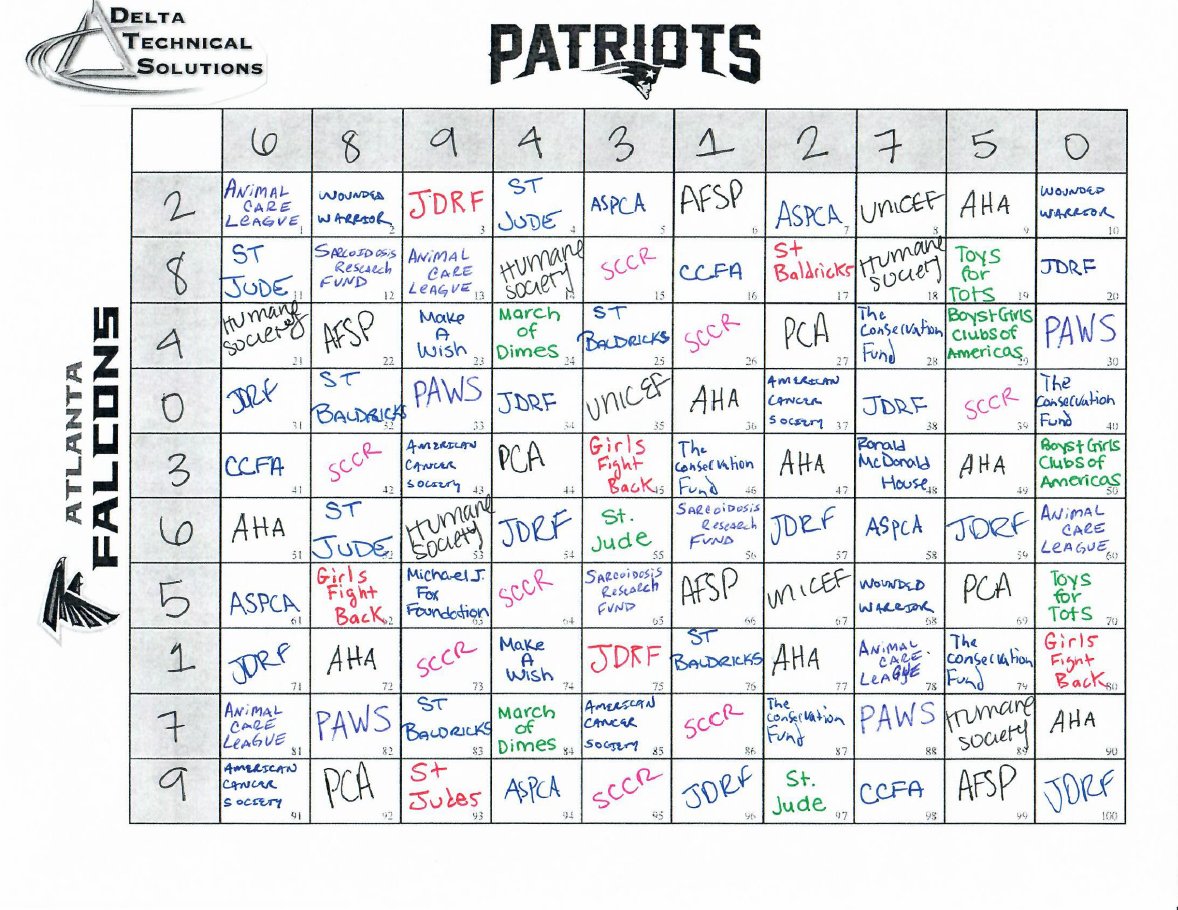 DELTA
TECHNICAL
SOLUTIONS
PATRIOTS
ATLANTA
FALCONS
6 8 9 4 3 1 2 7 5 0
2 ANIMAL CARE LEAGUE 1 WOUNDED WARRIOR 2 JDRF 3 ST JUDE 4 ASPCA 5 AFSP 6 ASPCA 7 UNICEF 8 AHA 9 WOUNDED WARRIOR 10
8 ST JUDE 11 SARCOIDOSIS RESEARCH FUND 12 ANIMAL CARE LEAGUE 13 Humane society 14 SCCR 15 CCFA 16 St Baldricks 17 Humane society 18 Toys for Tots 19 JDRF 20
4 Humane society 21 AFSP 22 Make A Wish 23 March of Dimes 24 ST BALDRICKS 25 SCCR 26 PCA 27 The Conservation Fund 28 Boys+Girls Clubs of Americas 29 PAWS 30
0 JDRF 31 ST BALDRICKS 32 PAWS 33 JDRF 34 UNICEF 35 AHA 36 AMERICAN CANCER SOCIETY 37 JDRF 38 SCCR 39 The Conservation Fund 40
3 CCFA 41 SCCR 42 AMERICAN CANCER SOCIETY 43 PCA 44 Girls Fight Back 45 The Conservation Fund 46 AHA 47 Ronald McDonald House 48 AHA 49 Boys+Girls Clubs of Americas 50
6 AHA 51 ST JUDE 52 Humane society 53 JDRF 54 St. Jude 55 SARCOIDOSIS RESEARCH FUND 56 JDRF 57 ASPCA 58 JDRF 59 ANIMAL CARE LEAGUE 60
5 ASPCA 61 Girls Fight Back 62 Michael J. Fox Foundation 63 SCCR 64 SARCOIDOSIS RESEARCH FUND 65 AFSP 66 UNICEF 67 WOUNDED WARRIOR 68 PCA 69 Toys for Tots 70
1 JDRF 71 AHA 72 SCCR 73 Make A Wish 74 JDRF 75 ST BALDRICKS 76 AHA 77 ANIMAL CARE LEAGUE 78 The Conservation Fund 79 Girls Fight Back 80
7 ANIMAL CARE LEAGUE 81 PAWS 82 ST BALDRICKS 83 March of Dimes 84 AMERICAN CANCER SOCIETY 85 SCCR 86 The Conservation Fund 87 PAWS 88 Humane society 89 AHA 90
9 AMERICAN CANCER SOCIETY 91 PCA 92 St Judes 93 ASPCA 94 SCCR 95 JDRF 96 St. Jude 97 CCFA 98 AFSP 99 JDRF 100